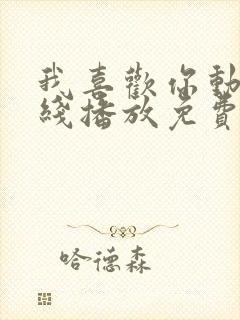 我喜歡你動
綫播放免費
哈德森